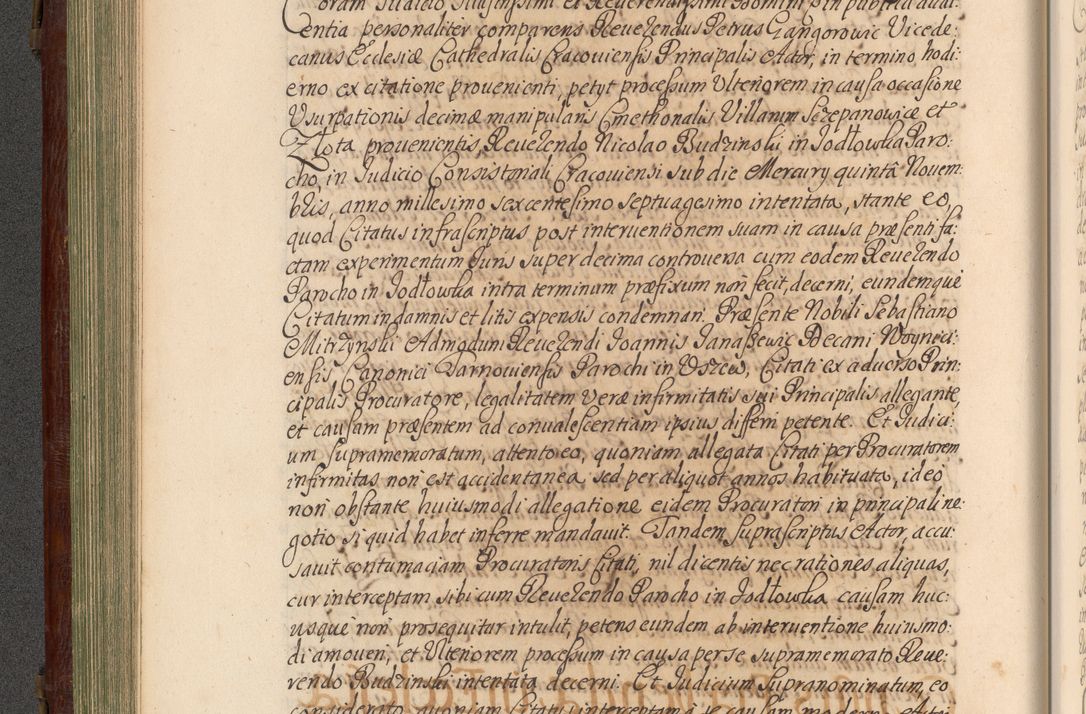 Coram Iudicio Illustrissimi et Reverendissimi Domini in publica audi:
entia personaliter comparens Reverendus Petrus Gangorowic Vicede:
canus Ecclesiæ Cathedralis Cracoviensis Principalis Actor, in termino hodi:
erno ex citatione provenienti, petyt processum Ulteriorem in causa occasione
Usurpationis decimæ manipularis Cmethonalis Villarum Sczepanowicæ et
Zlota provenientis, Reverendo Nicolao Budzinski in Jodłowka Paro:
cho, in Iudicio Consistoriali Cracoviensi sub die Mercury quintâ Novem:
bris, anno millesimo sexcentesimo septuagesimo intentata, stante eo,
quod Citatus infrascriptus post interventionem suam in causa præsenti fa:
ctam experimentum Iuris super decima controversa cum eodem Reverendo
Parocho in Jodłowka intra terminum præfixum non fecit, decerni, eundemque
Citatum in damnis et litis expensis condemnari. Præsente Nobili Sebastiano
Mitrzynski Admodum Reverendi Ioannis Janaszewic Decani Woynici:
ensis Canonici Tarnoviensis Parochi in Porcew, Citati ex adverso Prin:
cipalis Procuratore, legalitatem veræ infirmitatis sui Principalis allegante,
et causam præsentem ad convalescentiam ipsius differri petente. Et Iudici:
um supramemoratum, attento eo, quoniam allegata Citati per Procuratorem
infirmitas non est accidentanea, sed per aliquot annos habituata, ideò
non obstante huiusmodi allegatione eidem Procuratori in principali ne:
gotio si quid habet inferre mandavit. Tandem suprascriptus Actor, accu:
savit contumaciam Procuratoris Citati, nil dicentis nec rationes aliquas,
cur interceptam sibi cum Reverendo Parocho in Jodłowka causam huc:
usque non prosequitur intulit, petens eundem ab interventione huiusmo:
di amoveri, et Ulteriorem processum in causa per se supramemorato Reve:
rendo Budzinski intentata decerni. Et Iudicium supranominatum, eo
considerato, quoniam Citatus interceptam à se causam modern. Actori